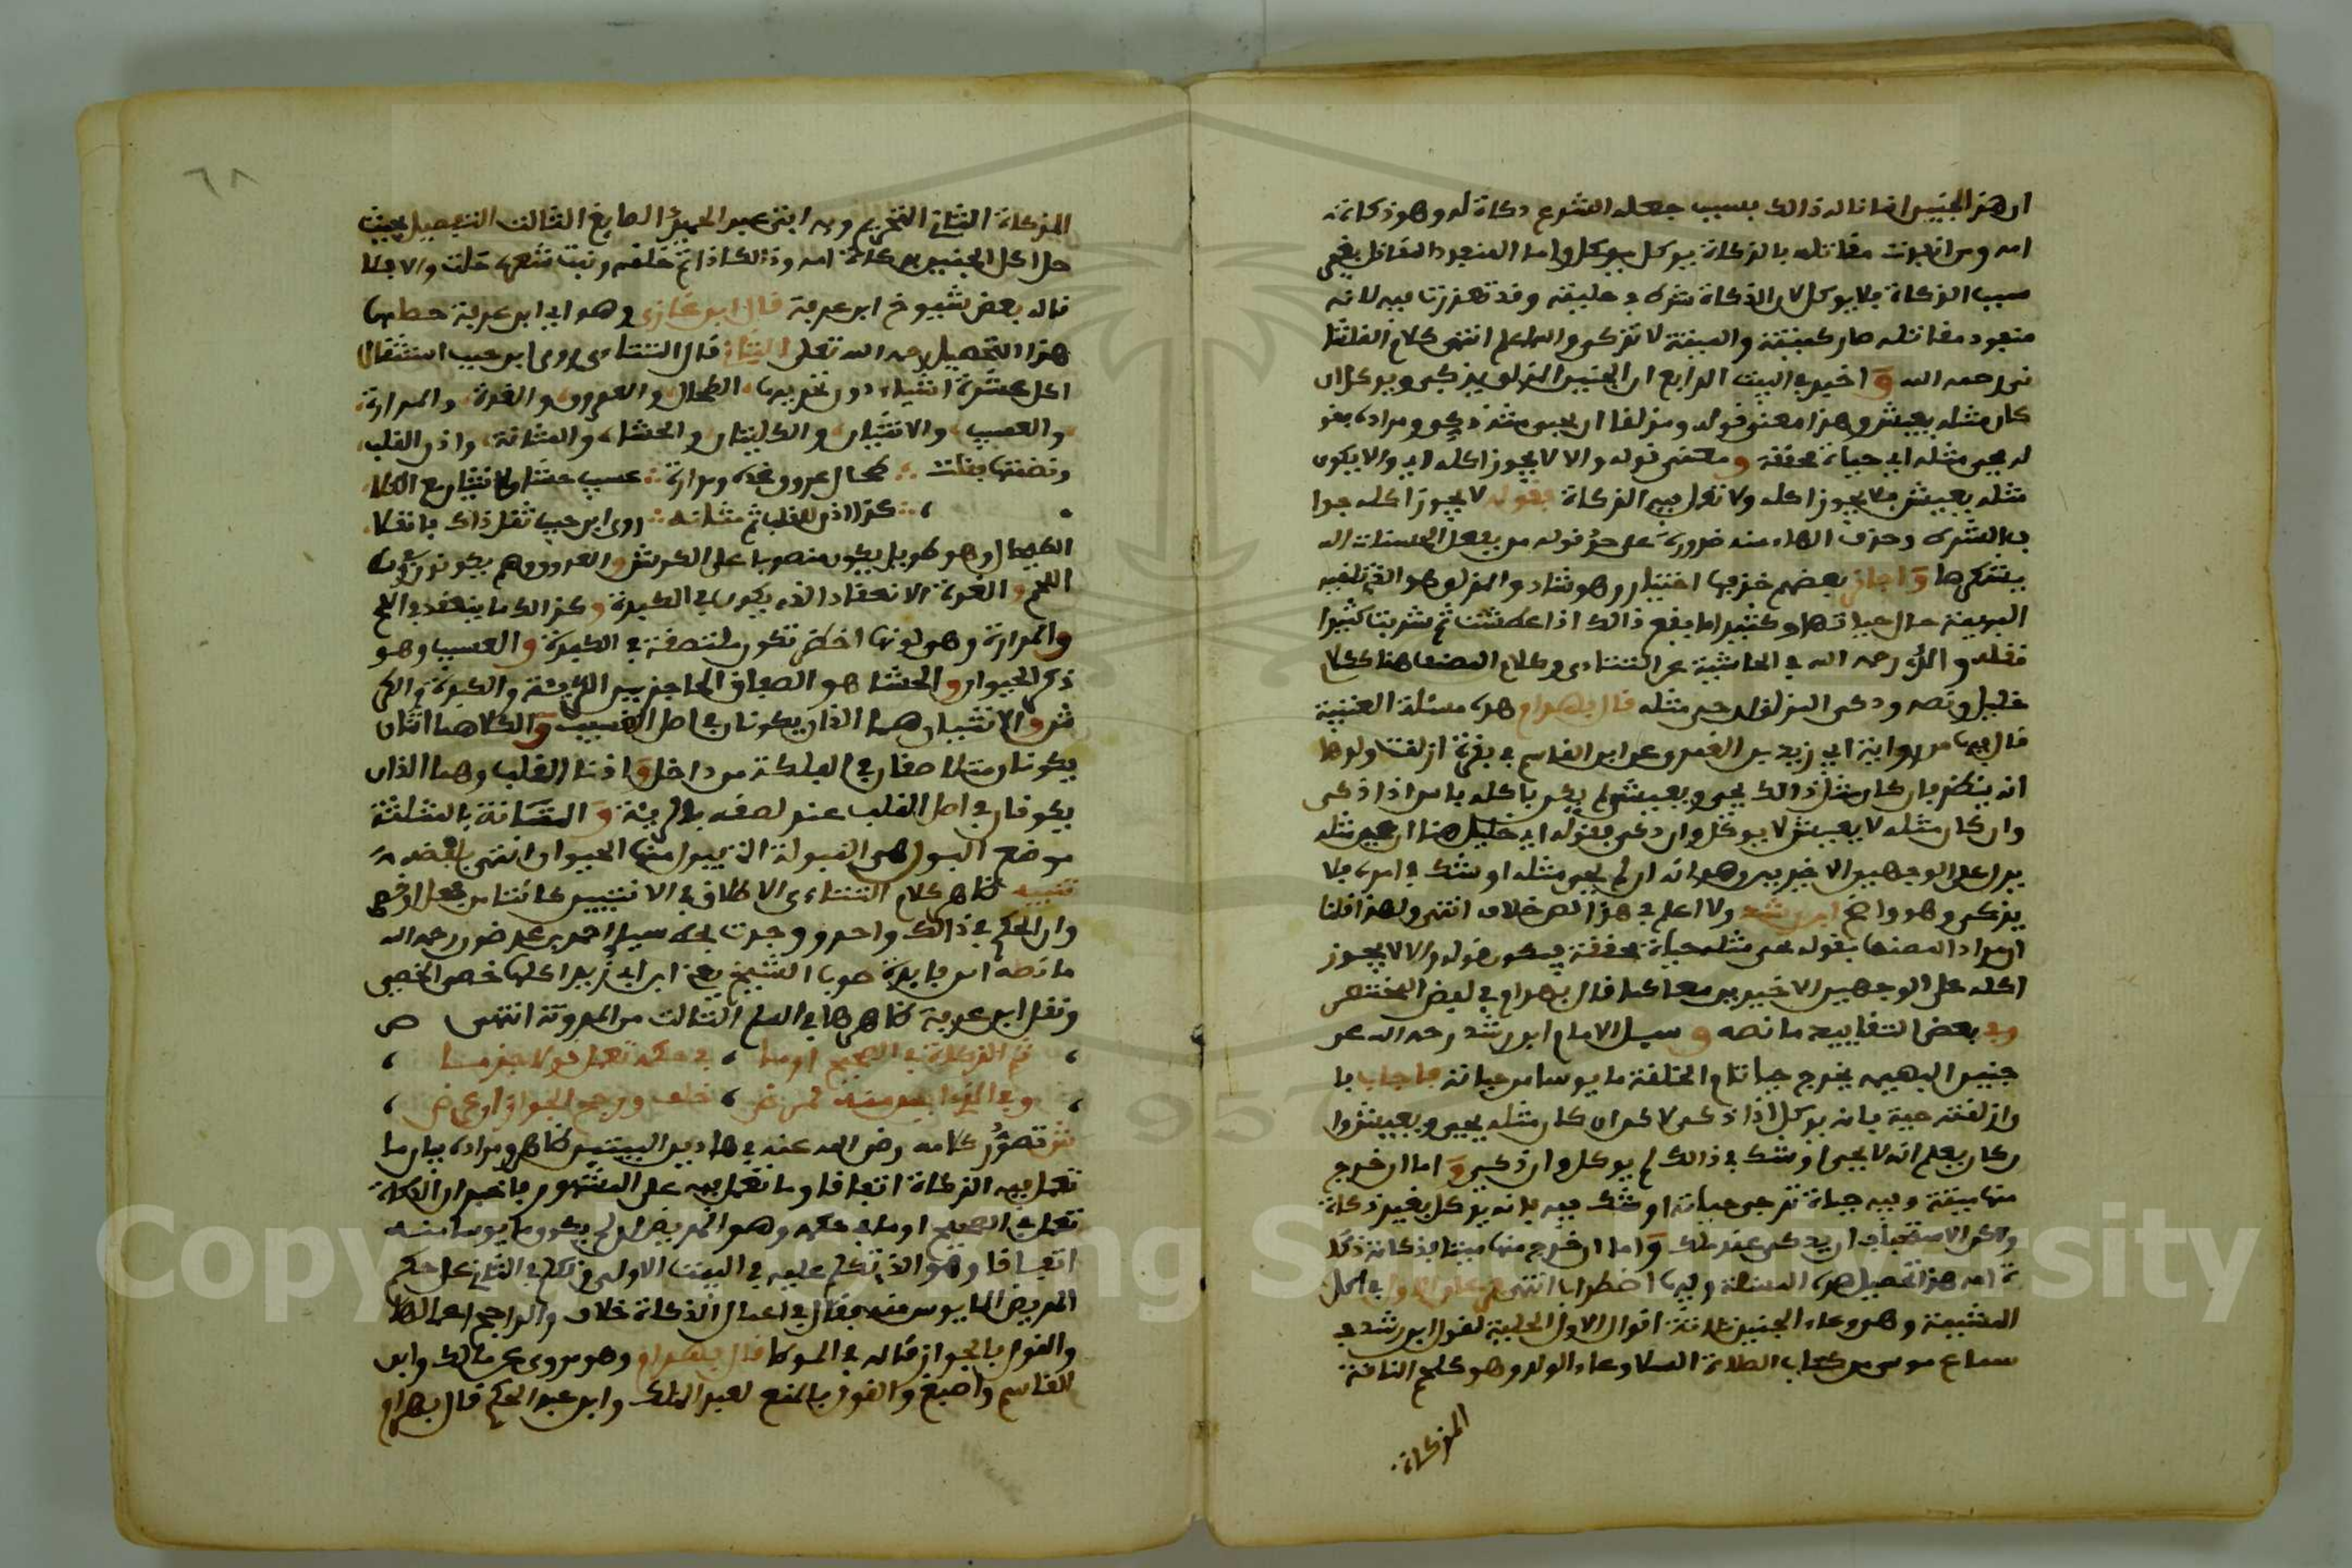 ان هذا الجنين انما ناله ذالك بسبب جعله الشرع ذكاة له وهو ذكاة
امه ومن انفذت مقاتله بالذكاة يوكل يوكل واما المنفوذ المقاتل بغير
سبب الذكاة فلا يوكل لان الذكاة شرك وقد تعززنا فيه لانه
منفوذ مقاتله صار كميتة والميتة لا تذكى والله اعلم انتهى كلام القلشا
ني رحمه الله و اخبر في البيت الرابع ان الجنين المزلق يذكى ويوكل ان
كان مثله يعيش وهذا معنى قوله ومزلقا ان يحيى مثله ذكي ومراده بقو
له يحيى مثله اي حياة محققة و مقتضى قوله والا لا يجوز اكله اي والا يكون
مثله يعيش فلا يجوز اكله ولا تعمل فيه الذكاة فقوله لا يجوز اكله جوا
ب الشرط وحذف الفاء منه ضرورة على حد قوله من يفعل الحسنات الله
يشكرها و اجاز بعضهم حذفها اختيار وهو شاذ والمزلق هو الذي تلقيه
البهيمة حال حياتها وكثيرا ما يقع ذالك اذا عطشت ثم شربت كثيرا
نقله والد رحمه الله في الحاشية عن التتاءي وكلام المصنف هنا ككلام
خليل ونصه وذكي المزلق ان حيي مثله قال بهرام هذه مسئلة العتبية
قال فيها من رواية ابي زيد بن الغمر وعن ابن القاسم في بقرة ازلقت ولدها
انه ينظر فان كان مثل ذالك يحيى ويعيش لم يكن باكله باس اذا ذكي
وان كان مثله لا يعيش لا يوكل وان ذكي فقوله اي خليل هنا ان حيي مثله
يدل على الوجهين الاخيرين وهو انه ان لم يحيى مثله او شك في امره فلا
يذكى وهو واضح ابن رشد ولا اعلم في هذا النص خلاف انتهى ولهذا قلنا
ان مراد المصنف بقوله يحيى مثله حياة محققة فيكون قوله والا لا يجوز
اكله على الوجهين الاخيرين معا كما قال بهرام في لفظ المختصر
وفي بعض التقاييد ما نصه و سيل الامام ابن رشد رحمه الله عن
جنين البهيمة يخرج حيا تام الخلقة مايوسا من حياته فاجاب با
وازلقته حية فانه يوكل اذا ذكي لاكن ان كان مثله يحيى ويعيش وا
ن كان يعلم انه لا يحيى او شك في ذالك لم يوكل وان ذكي و اما ان خرج
منها ميتة وفيه حياة ترجى حياته او شك فيه فانه يوكل بغير ذكاة
ولاكن الاستحباب ان يذكى عند ملك و اما ان خرج منها ميتا فذكاته ذكا
ة امه هذا تحصيل هذه المسئلة وفيها اضطراب انتهى الاول في اكل
المشيمة وهو وعاء الجنين ثلاثة اقوال الاول الحلية لقول ابن رشد في
سماع موسى من كتاب الصلاة السلا وعاء الولد وهو كلحم الناقة
المذكاة
٦٨
المذكاة الثاني التحريم وبه افتى عبد الحميد الصايغ الثالث التفصيل بحيث
حل اكل الجنين بذكاة امه وذالك اذا تم خلقه ونبت شعره حلت والا فلا
قاله بعض شيوخ ابن عرفة قال ابن غازي وهو اي ابن عرفة
هذا التحصيل رحمه الله تعلى الثاني قال التتاءي روى ابن حبيب استثقال
اكل عشرة اشياء دون تحريمها الطحال والعروق والغدة والمرارة
والعسيب والانثيان والكليتان والحشا والمثانة واذن القلب
ونظمتها فقلت طحال عروق غدة ومرارة عسيب حشا ولانثيان مع الكلا
كذا اذن القلب ثم مثانة روى ابن حبيب ثقل ذاك فانقلا
الطحال وهو طويل يكون منصوبا على الكرش و العروق وهم يكونون في
اللحم و الغدة الانعقاد الذي يكون في الكبدة و كذالك ما ينعقد في اللحم
و المرارة وهو لونها اخضر تكون ملتصقة في الكبدة و العسيب وهو
ذكر الحيوان و الحشا هو الصفاق الحاجز بين الرئة والكبدة والكر
ش و الانثيان هما الذان يكونان في اصل القسيب و الكلاهما اثنان
يكونان في الفلكة من داخل و اذنا القلب وهما الذان
يكونان في اصل القلب عند لصقه بالرية و المثانة بالمثلثة
موضع البول هي المبولة التي يبول منها الحيوان انتهى بلفظه
تنبيه ظاهر كلام التتاءي الاطلاق في الانثيين كانتا من فحل او خصي
وان الحكم في ذالك واحد ووجدت بخط سيدي احمد بن رحمه الله
ما نصه اس فايدة صوب الشيخ يعني ابن ابي زيد اكلها خصى الخصي
ونقل ابن عرفة ظاهرها في السلم الثالث من المدونة انتهى ص
ثم الذكاة في الصحيح او ما في حكمه تعمل قولا جزما
وفي الذي ايس منه لمرض خلف ورجح الجواز ان عرض
ش تصور كلامه رضي الله عنه في هاذين البيتين ظاهر ومراده بيان ما
تعمل فيه الذكاة اتفاقا وما تعمل فيه على المشهور فاخبر ان الذكاة
تعمل في الصحيح او ما في حكمه وهو المريض الذي لم يكن مايوسا منه
اتفاقا وهو الذي تكلم عليه في البيت الاول ثم تكلم في الثاني على حكم
المريض المايوس منه فقال في اعمال الذكاة خلاف والراجح اعمالها
والقول بالجواز قاله في الموطا قال بهرام وهو مروى عن مالك وابن
القاسم واصبغ والقول بالمنع لعبد الملك وابن عبد الحكم قال بهرام
Copyright © King Saud University
1957